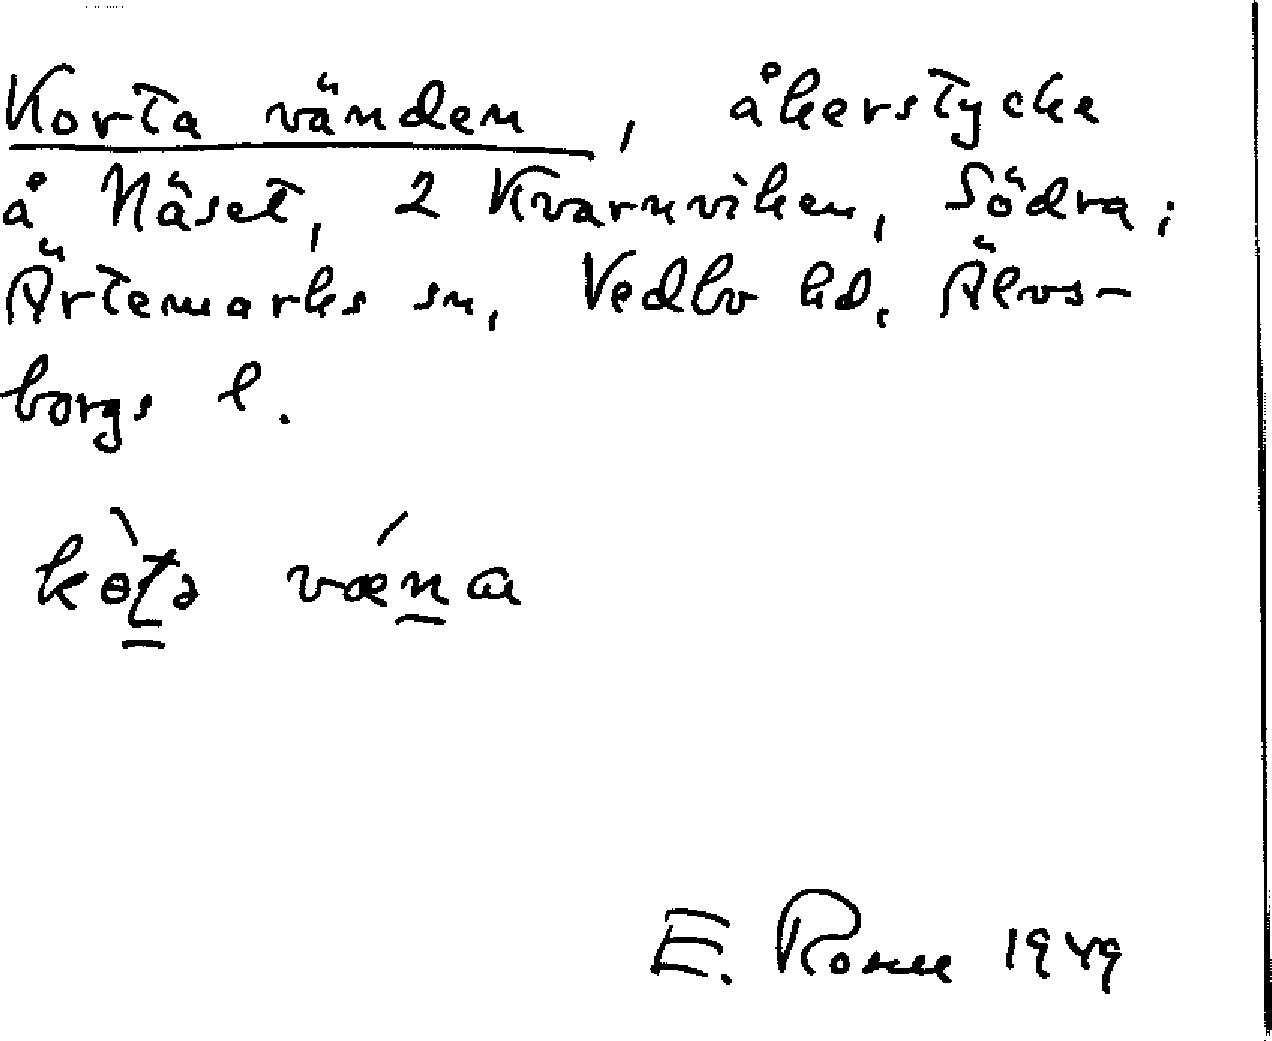 Korta vänden, åkerstycke
å Näset, 2 Kvarnviken, Södra;
Ärtemarks sn, Vedbo hd, Älvs-
borgs l.
E. Rosne 1949